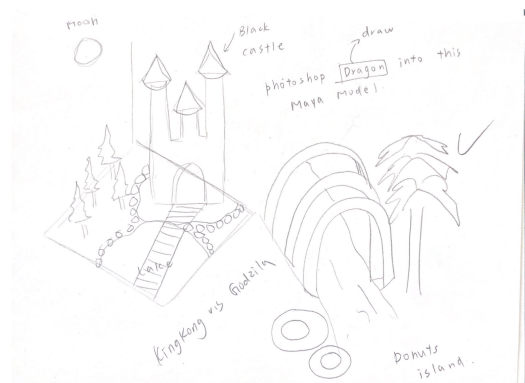 Moon
Black
castle
draw
photoshop Dragon into this
Maya Model.
Lake
KingKong v.s Godzila
Donuts
island.